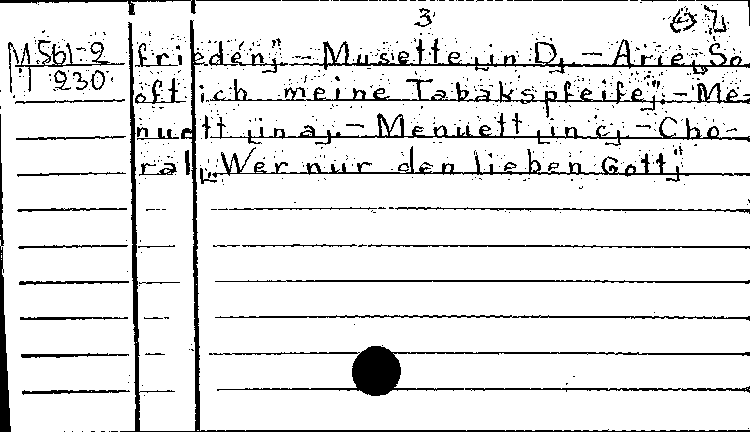 3
M 561-2 frieden" – Musette in D, – Arie, So
M 230 oft ich meine Tabakspfeife". – Me-
nuett in a. – Menuett in c, – Cho-
ral, "Wer nur den lieben Gott"